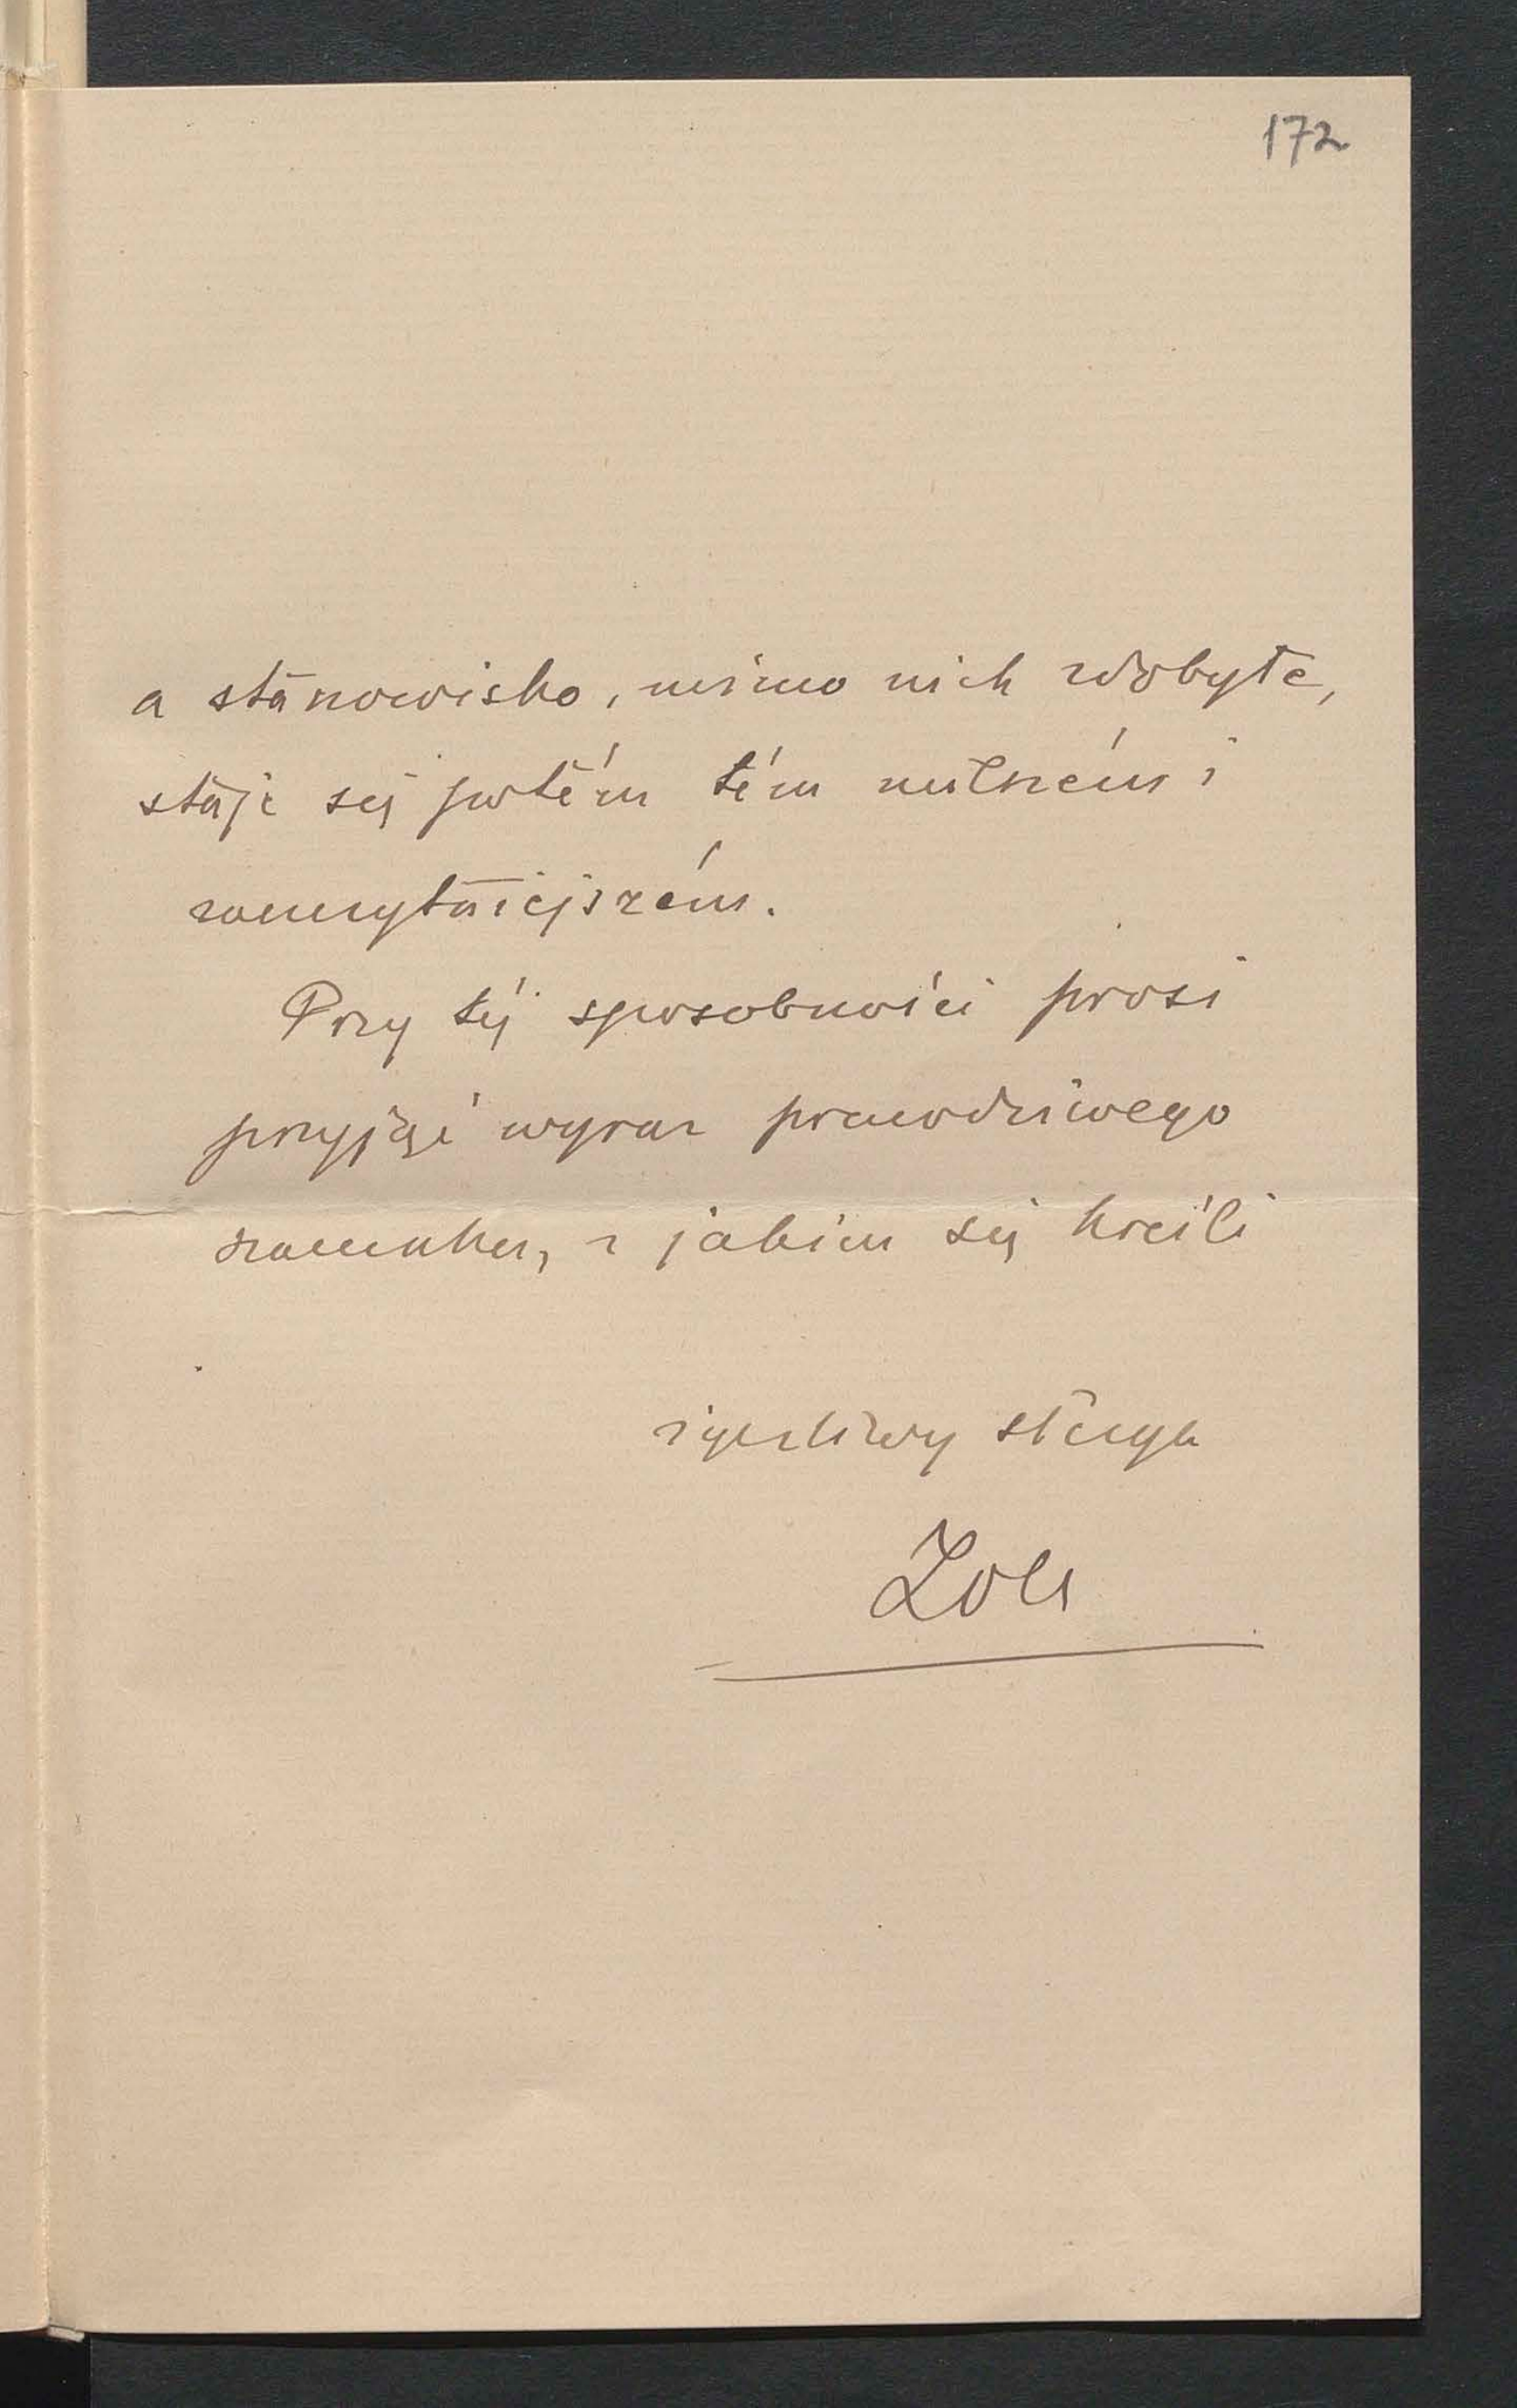 172
a stanowisko, mimo nich zdobyte,
staje się potém tém milszém i
zaszczytniejszém.
Przy téj sposobności prosi
przyjąć wyraz prawdziwego
szacunku, z jakim się kreśli
życzliwy sługa
Zoll